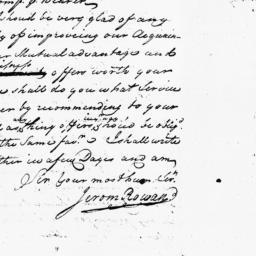 should be very glad of any
of improving our Acquain-
Mutual advantage and
offers worth your
shall do you what Service
by recommending to your
any thing offers shou'd be oblig'd
the same fav.r I shall write
ther in a few Days and am
Sir Your most hum Ser.
Jerom Rowand